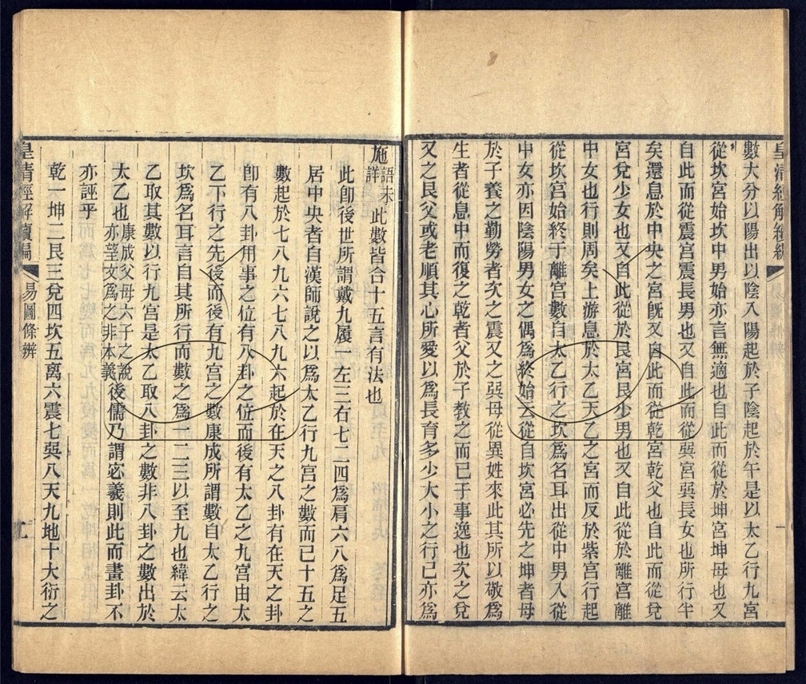 皇清經解續編
數大分以陽出以陰入陽起於子陰起於午是以太乙行九宮
從坎宮始坎中男始亦言無適也自此而從於坤宮坤母也又
自此而從震宮震長男也又自此而從巽宮巽長女也所行半
矣還息於中央之宮旣又自此而從乾宮乾父也自此而從兌
宮兌少女也又自此從於艮宮艮少男也又自此從於離宮離
中女也行則周矣上游息於太乙天乙之宮而反於紫宮行起
從坎宮始終于離宮數自太乙行之坎爲名耳出從中男入從
中女亦因陰陽男女之偶爲終始云從自坎宮必先之坤者母
於子養之勤勞者次之震又之巽母從異姓來此其所以敬爲
生者從息中而復之乾者父於子教之而已于事逸也次之兌
又之艮父或老順其心所愛以爲長育多少大小之行已亦爲
施詳語未此數皆合十五言有法也
此卽後世所謂戴九履一左三右七二四爲肩六八爲足五
居中央者自漢師說之以爲太乙行九宮之數而已十五之
數起於七八九六七八九六起於在天之八卦有在天之卦
卽有八卦用事之位有八卦之位而後有太乙之九宮由太
乙下行之先後而後有九宮之數康成所謂數自太乙行之
坎爲名耳言自其所行而數之爲一二三以至九也緯云太
乙取其數以行九宮是太乙取八卦之數非八卦之數出於
太乙也康成父母六子之說亦望文爲之非本義後儒乃謂宓羲則此而畫卦不
亦誣乎
乾一坤二艮三兌四坎五离六震七巽八天九地十大衍之
皇清經解續編
易圖條辨